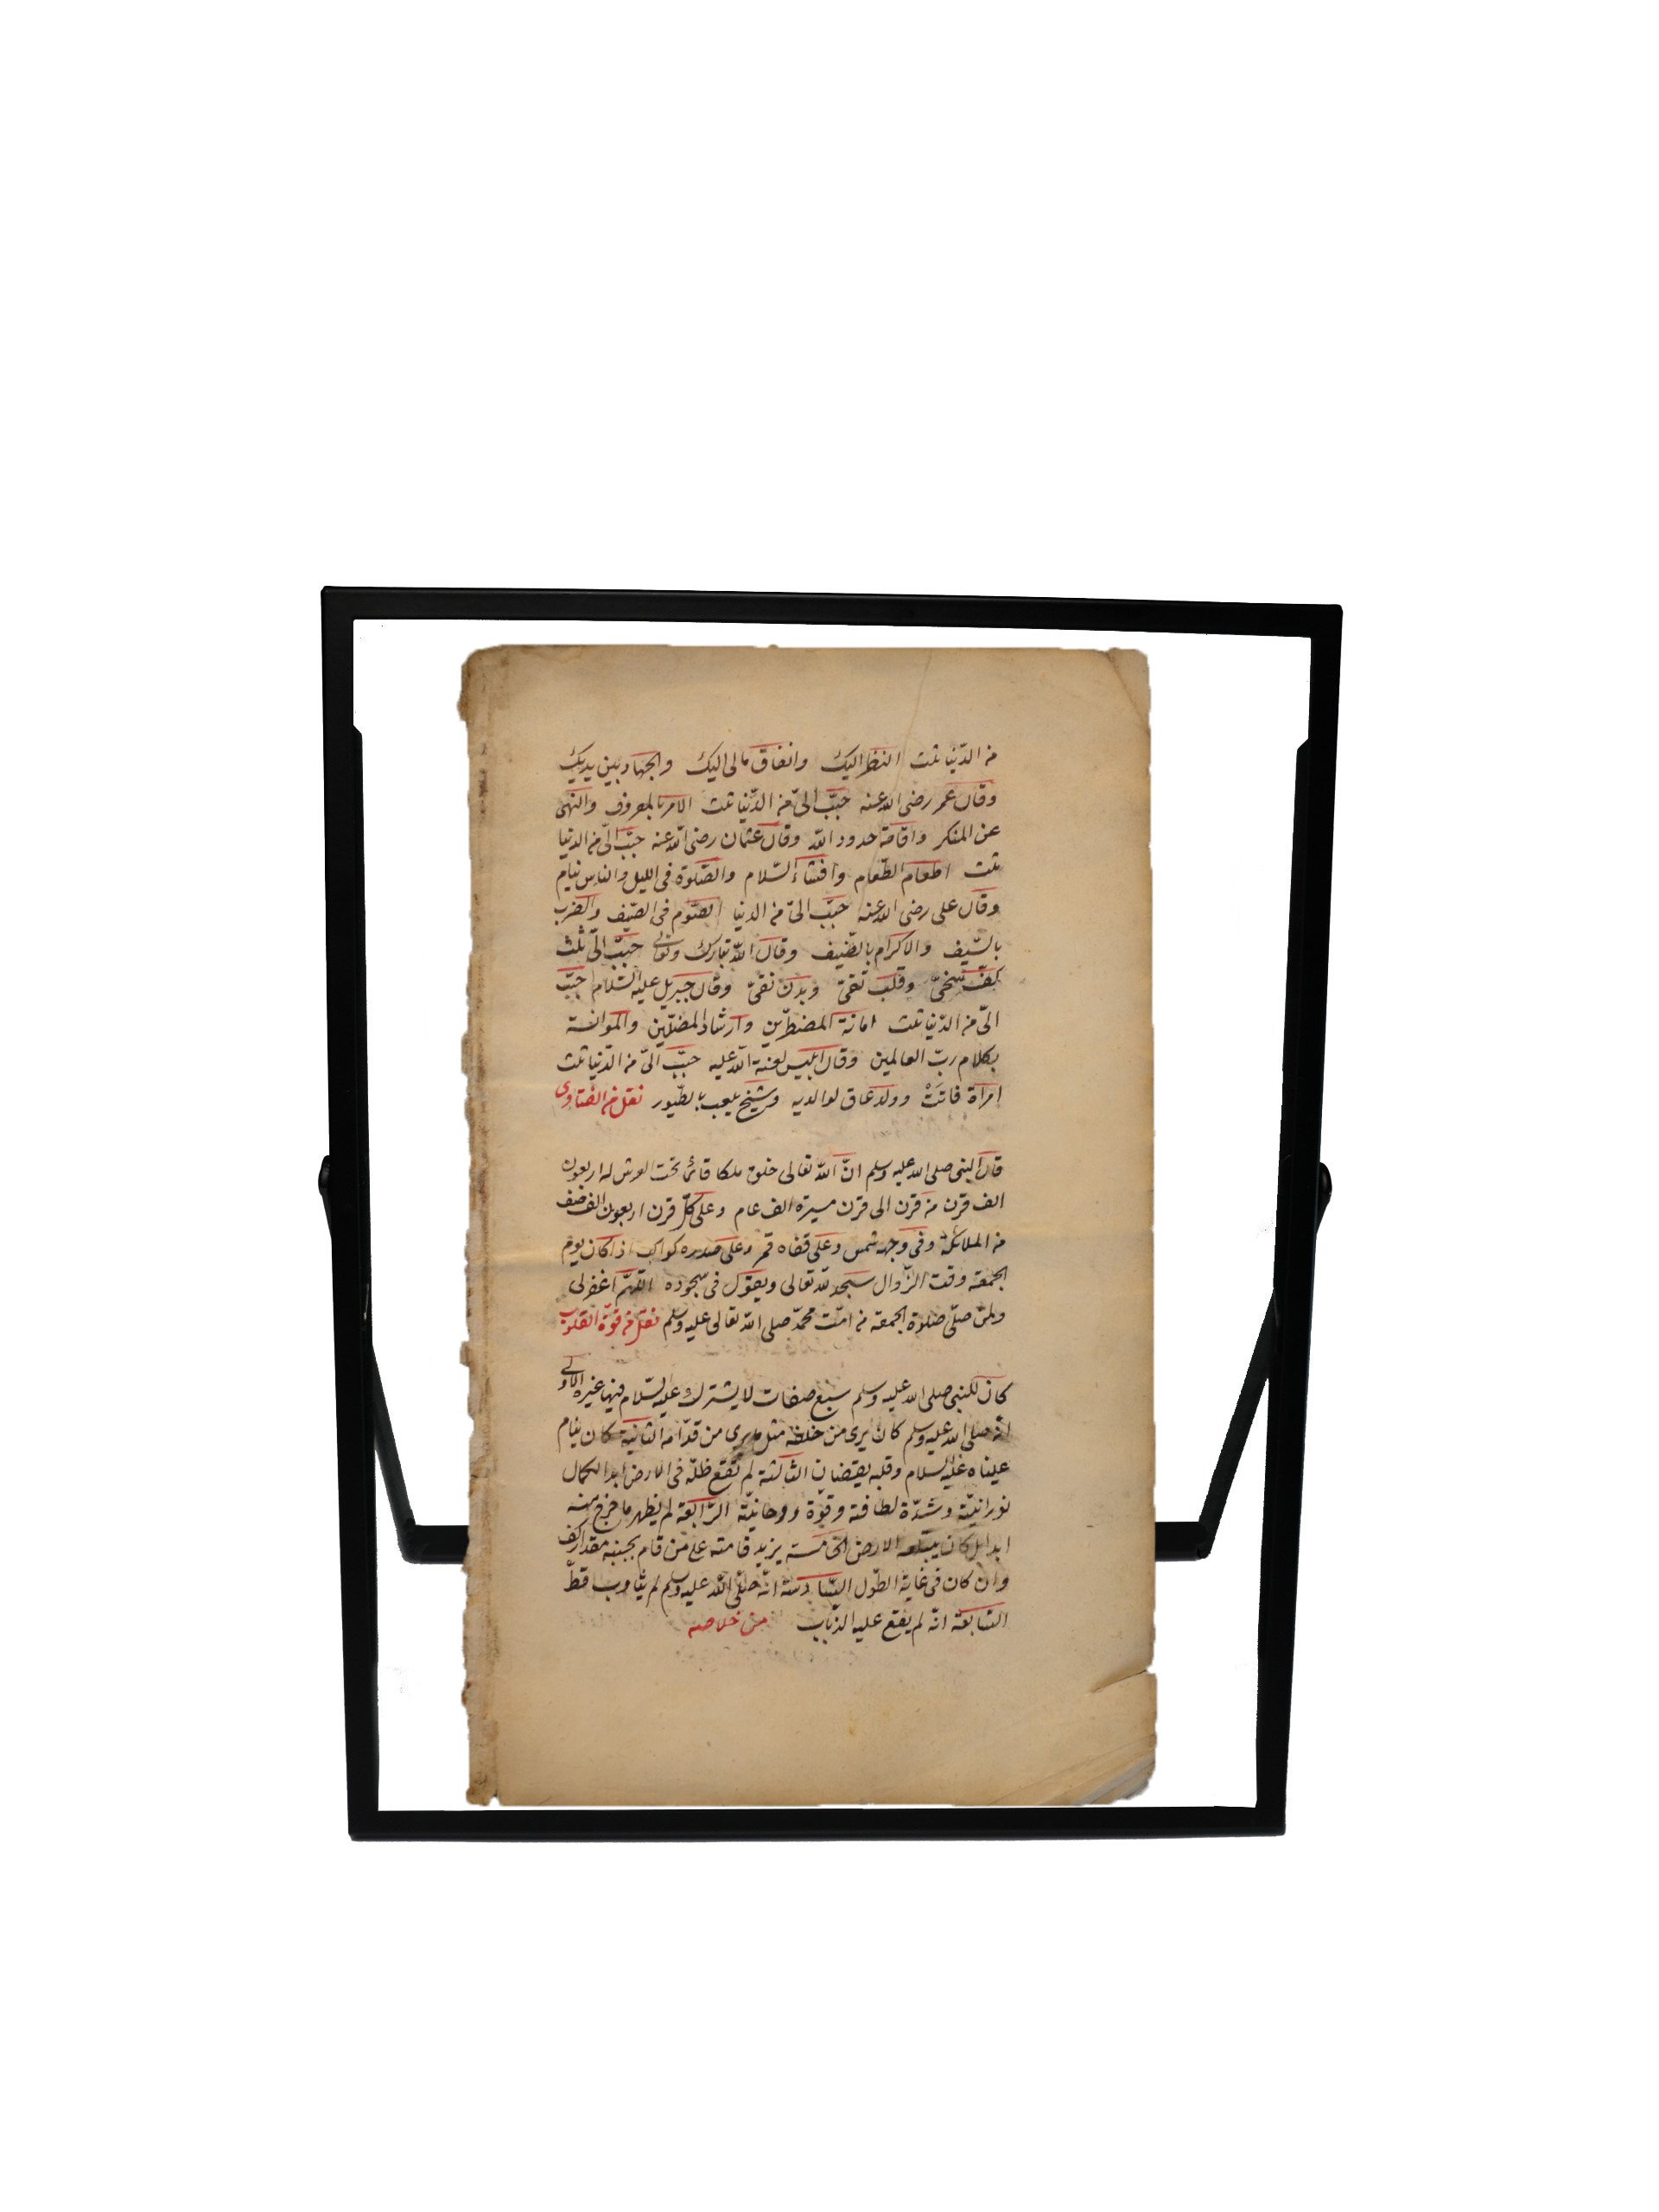 من الدّنيا ثلث النظر اليك وانفاق مالى اليك والجهاد بين يديك
وقال عمر رضى الله عنه حبّب الىّ من الدّنيا ثلث الامر بالمعروف والنهى
عن المنكر واقامة حدود الله وقال عثمان رضى الله عنه حبّب الىّ من الدنيا
ثلث اطعام الطّعام وافشاء السّلام والصّلوة فى الليل والناس نيام
وقال على رضى الله عنه حبّب الىّ من الدنيا الصّوم فى الصّيف والضرب
بالسّيف والاكرام بالضّيف وقال الله تبارك وتعالى حبّب الىّ ثلث
كفّ سخىّ وقلب تقىّ وبدن نقىّ وقال جبريل عليه السّلام حبّب
الىّ من الدّنيا ثلث امانة المضطرّين وارشاد المضلّين والموانسة
بكلام ربّ العالمين وقال ابليس لعنة الله عليه حبّب الىّ من الدّنيا ثلث
امراة فاتت وولد عاق لوالديه وشيخ يلعب بالطّيور نقل من الفتاوى
قال النبى صلى الله عليه وسلم انّ الله تعالى خلق ملكا قائما تحت العرش له اربعون
الف قرن من قرن الى قرن مسيرة الف عام وعلى كلّ قرن اربعون الف صف
من الملائكة وفى وجهه شمس وعلى قفاه قمر وعلى صدره كواكب اذا كان يوم
الجمعة وقت الزّوال سجد لله تعالى ويقول فى سجوده اللّهمّ اغفر لى
ولمن صلّى صلوة الجمعة من امّت محمّد صلى الله تعالى عليه وسلم نقل من قوّة القلوب
كان للنبى صلى الله عليه وسلم سبع صفات لا يشترك عليه السّلام فيها غيره الاولى
انّه صلى الله عليه وسلم كان يرى من خلفه مثل ما يرى من قدّامه الثانية كان ينام
عيناه عليه السلام وقلبه يقضان الثالثة لم تقع ظلّه فى الارض ابدا لكمال
نورانيّة وشدّة لطافة وقوّة روحانيّة الرّابعة لم يظهر ما خرج منه
ابدا بل كان يبتلعه الارض الخامسة يزيد قامته على من قام بجنبه مقدار كف
وان كان فى غاية الطّول السّادسة انّه صلّى الله عليه وسلم لم يتثاوب قطّ
السّابعة انّه لم يقع عليه الذّباب من خلاصه